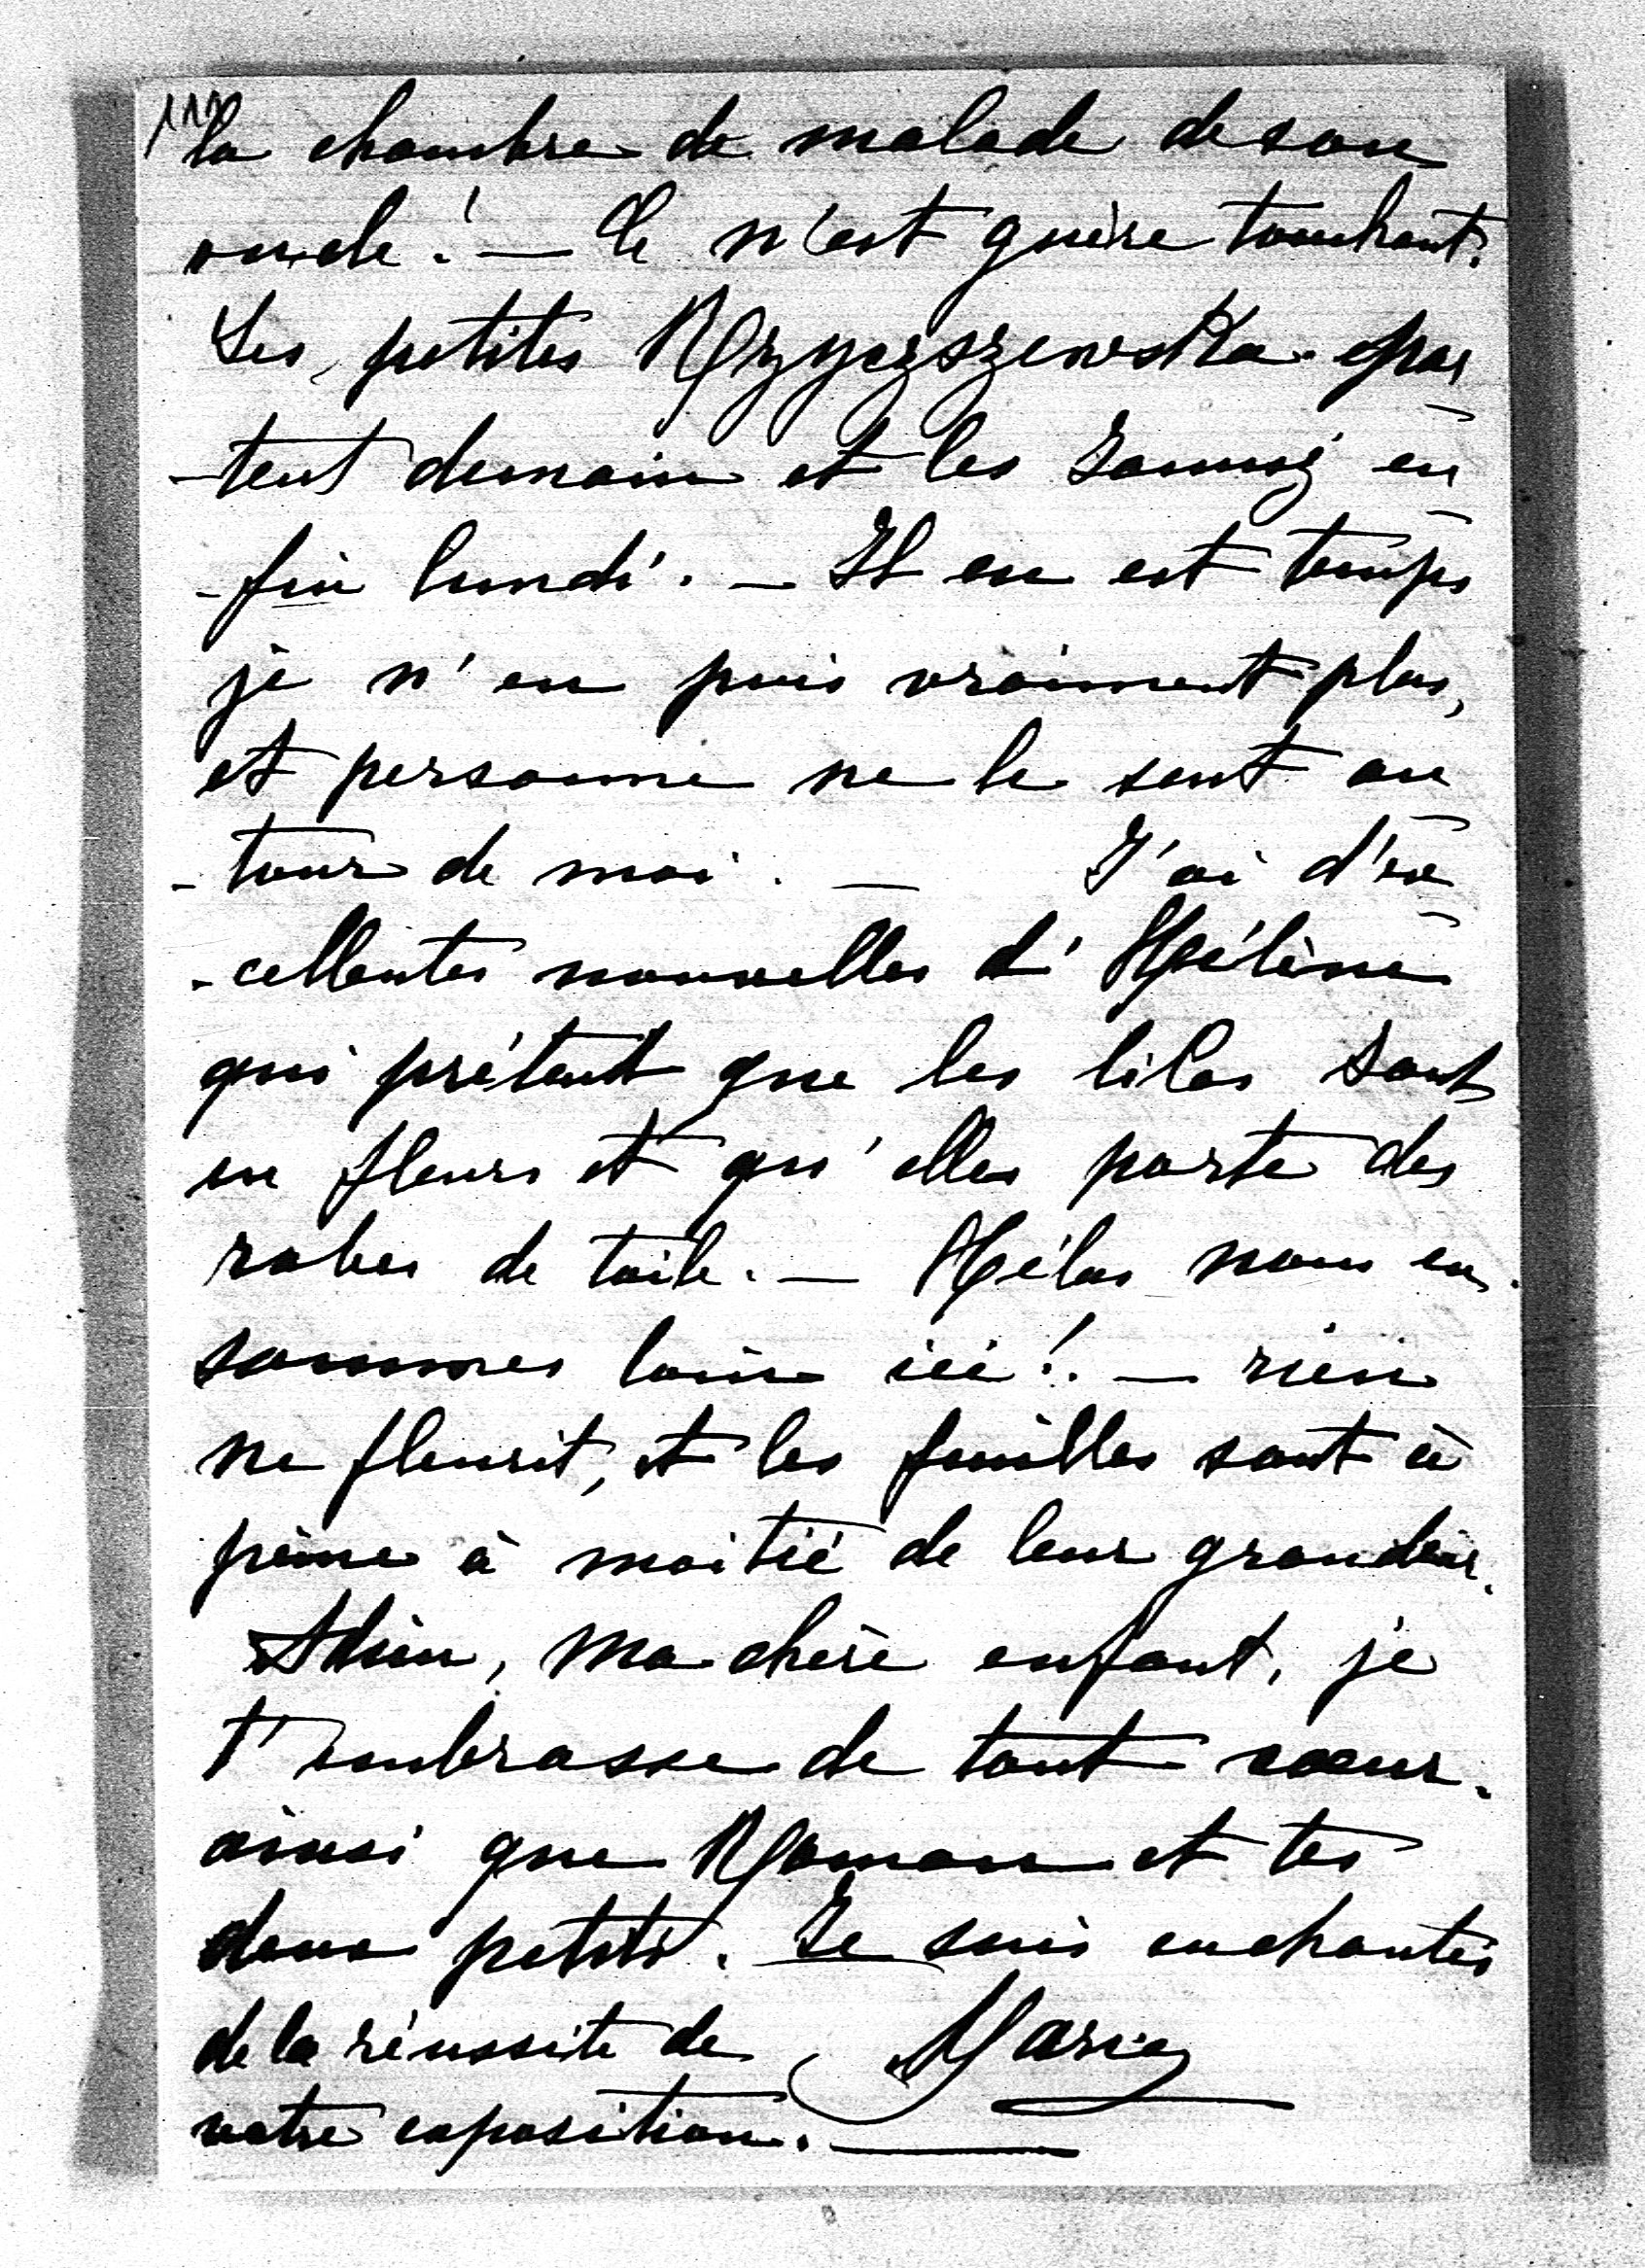 la chambre de malade de son
oncle! — Ce n'est guère touchant.
Les petites Rzyszczewska par
-tent demain et les
-fin lundi. — Il en est temps
je n'en puis vraiment plus,
et personne ne le sent au
-tour de moi. — J'ai d'ex
-cellentes nouvelles d'Hélène
qui prétend que les lilas sont
en fleurs et qu'elle porte des
robes de toile. — Hélas nous en
sommes loin ici! — rien
ne fleurit, et les feuilles sont à
peine à moitié de leur grandeur.
Adieu, ma chère enfant, je
t'embrasse de tout coeur.
ainsi que Roman et tes
deux petits. Je suis enchantée
de la réussite de Marie
votre exposition.